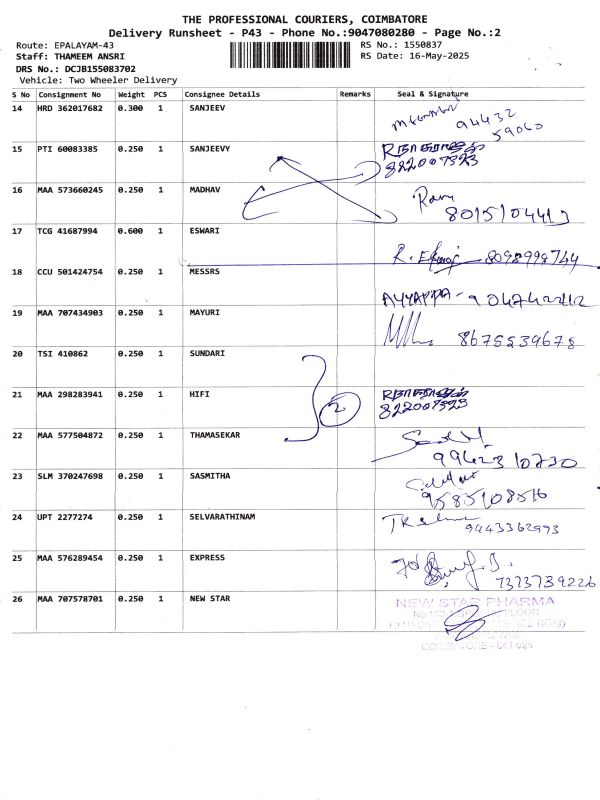 THE PROFESSIONAL COURIERS, COIMBATORE
Delivery Runsheet - P43 - Phone No.:9047080280 - Page No.:2
Route: EPALAYAM-43 RS No.: 1550837
Staff: THAMEEM ANSRI RS Date: 16-May-2025
DRS No.: DCJB155083702
Vehicle: Two Wheeler Delivery
S No Consignment No Weight PCS Consignee Details Remarks Seal & Signature
14 HRD 362017682 0.300 1 SANJEEV
94432
59060
15 PTI 60083385 0.250 1 SANJEEVY
822007323
16 MAA 573660245 0.250 1 MADHAV
8015104413
17 TCG 41687994 0.600 1 ESWARI
8098998744
18 CCU 501424754 0.250 1 MESSRS
AYYAPPA -
19 MAA 707434903 0.250 1 MAYURI
8675539678
20 TSI 410862 0.250 1 SUNDARI
2
21 MAA 298283941 0.250 1 HIFI
822007323
22 MAA 577504872 0.250 1 THAMASEKAR
9942310730
23 SLM 370247698 0.250 1 SASMITHA
9585108516
24 UPT 2277274 0.250 1 SELVARATHINAM
9443362993
25 MAA 576289454 0.250 1 EXPRESS
7373739226
26 MAA 707578701 0.250 1 NEW STAR
NEW STAR PHARMA
COIMBATORE - 641 025